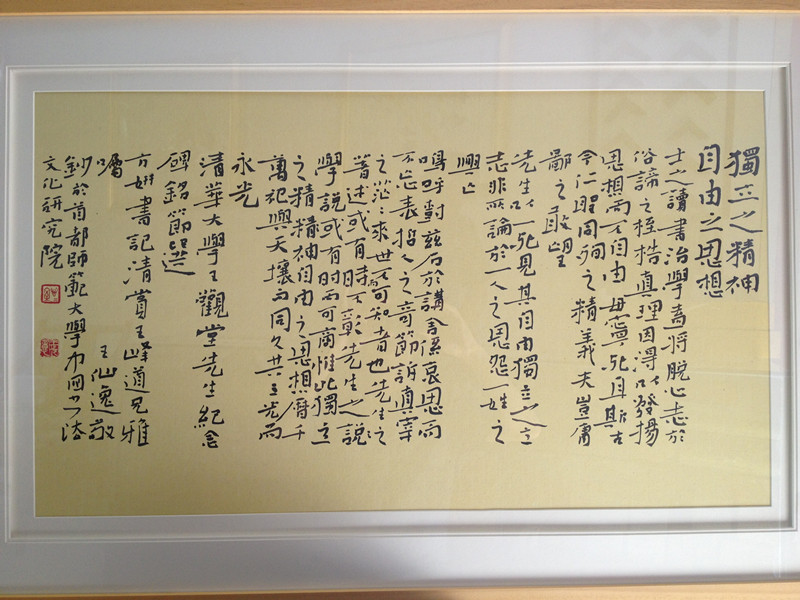 獨立之精神
自由之思想
士之讀書治學蓋將脫心志於
俗諦之桎梏真理因得以發揚
思想而不自由毋寧死耳斯古
今仁聖同殉之精義夫豈庸
鄙之敢望
先生以一死見其自由獨立之
志非所論於一人之恩怨一姓之
興亡
嗚呼對茲石於講舍系哀思而
不忘表哲人之奇節訴真宰
之茫茫來世不可知者也先生之
著述或有時不彰先生之說
學說或有時而可商惟此獨立
之精精神自由之思想曆千
萬祀與天壤而同久共三光而
永光
清華大學王觀堂先生紀念
碑銘節選
方妍書記清賞王峰道兄雅
囑 王仙逸敬
鈔於首都師範大學中國書法
文化研究院